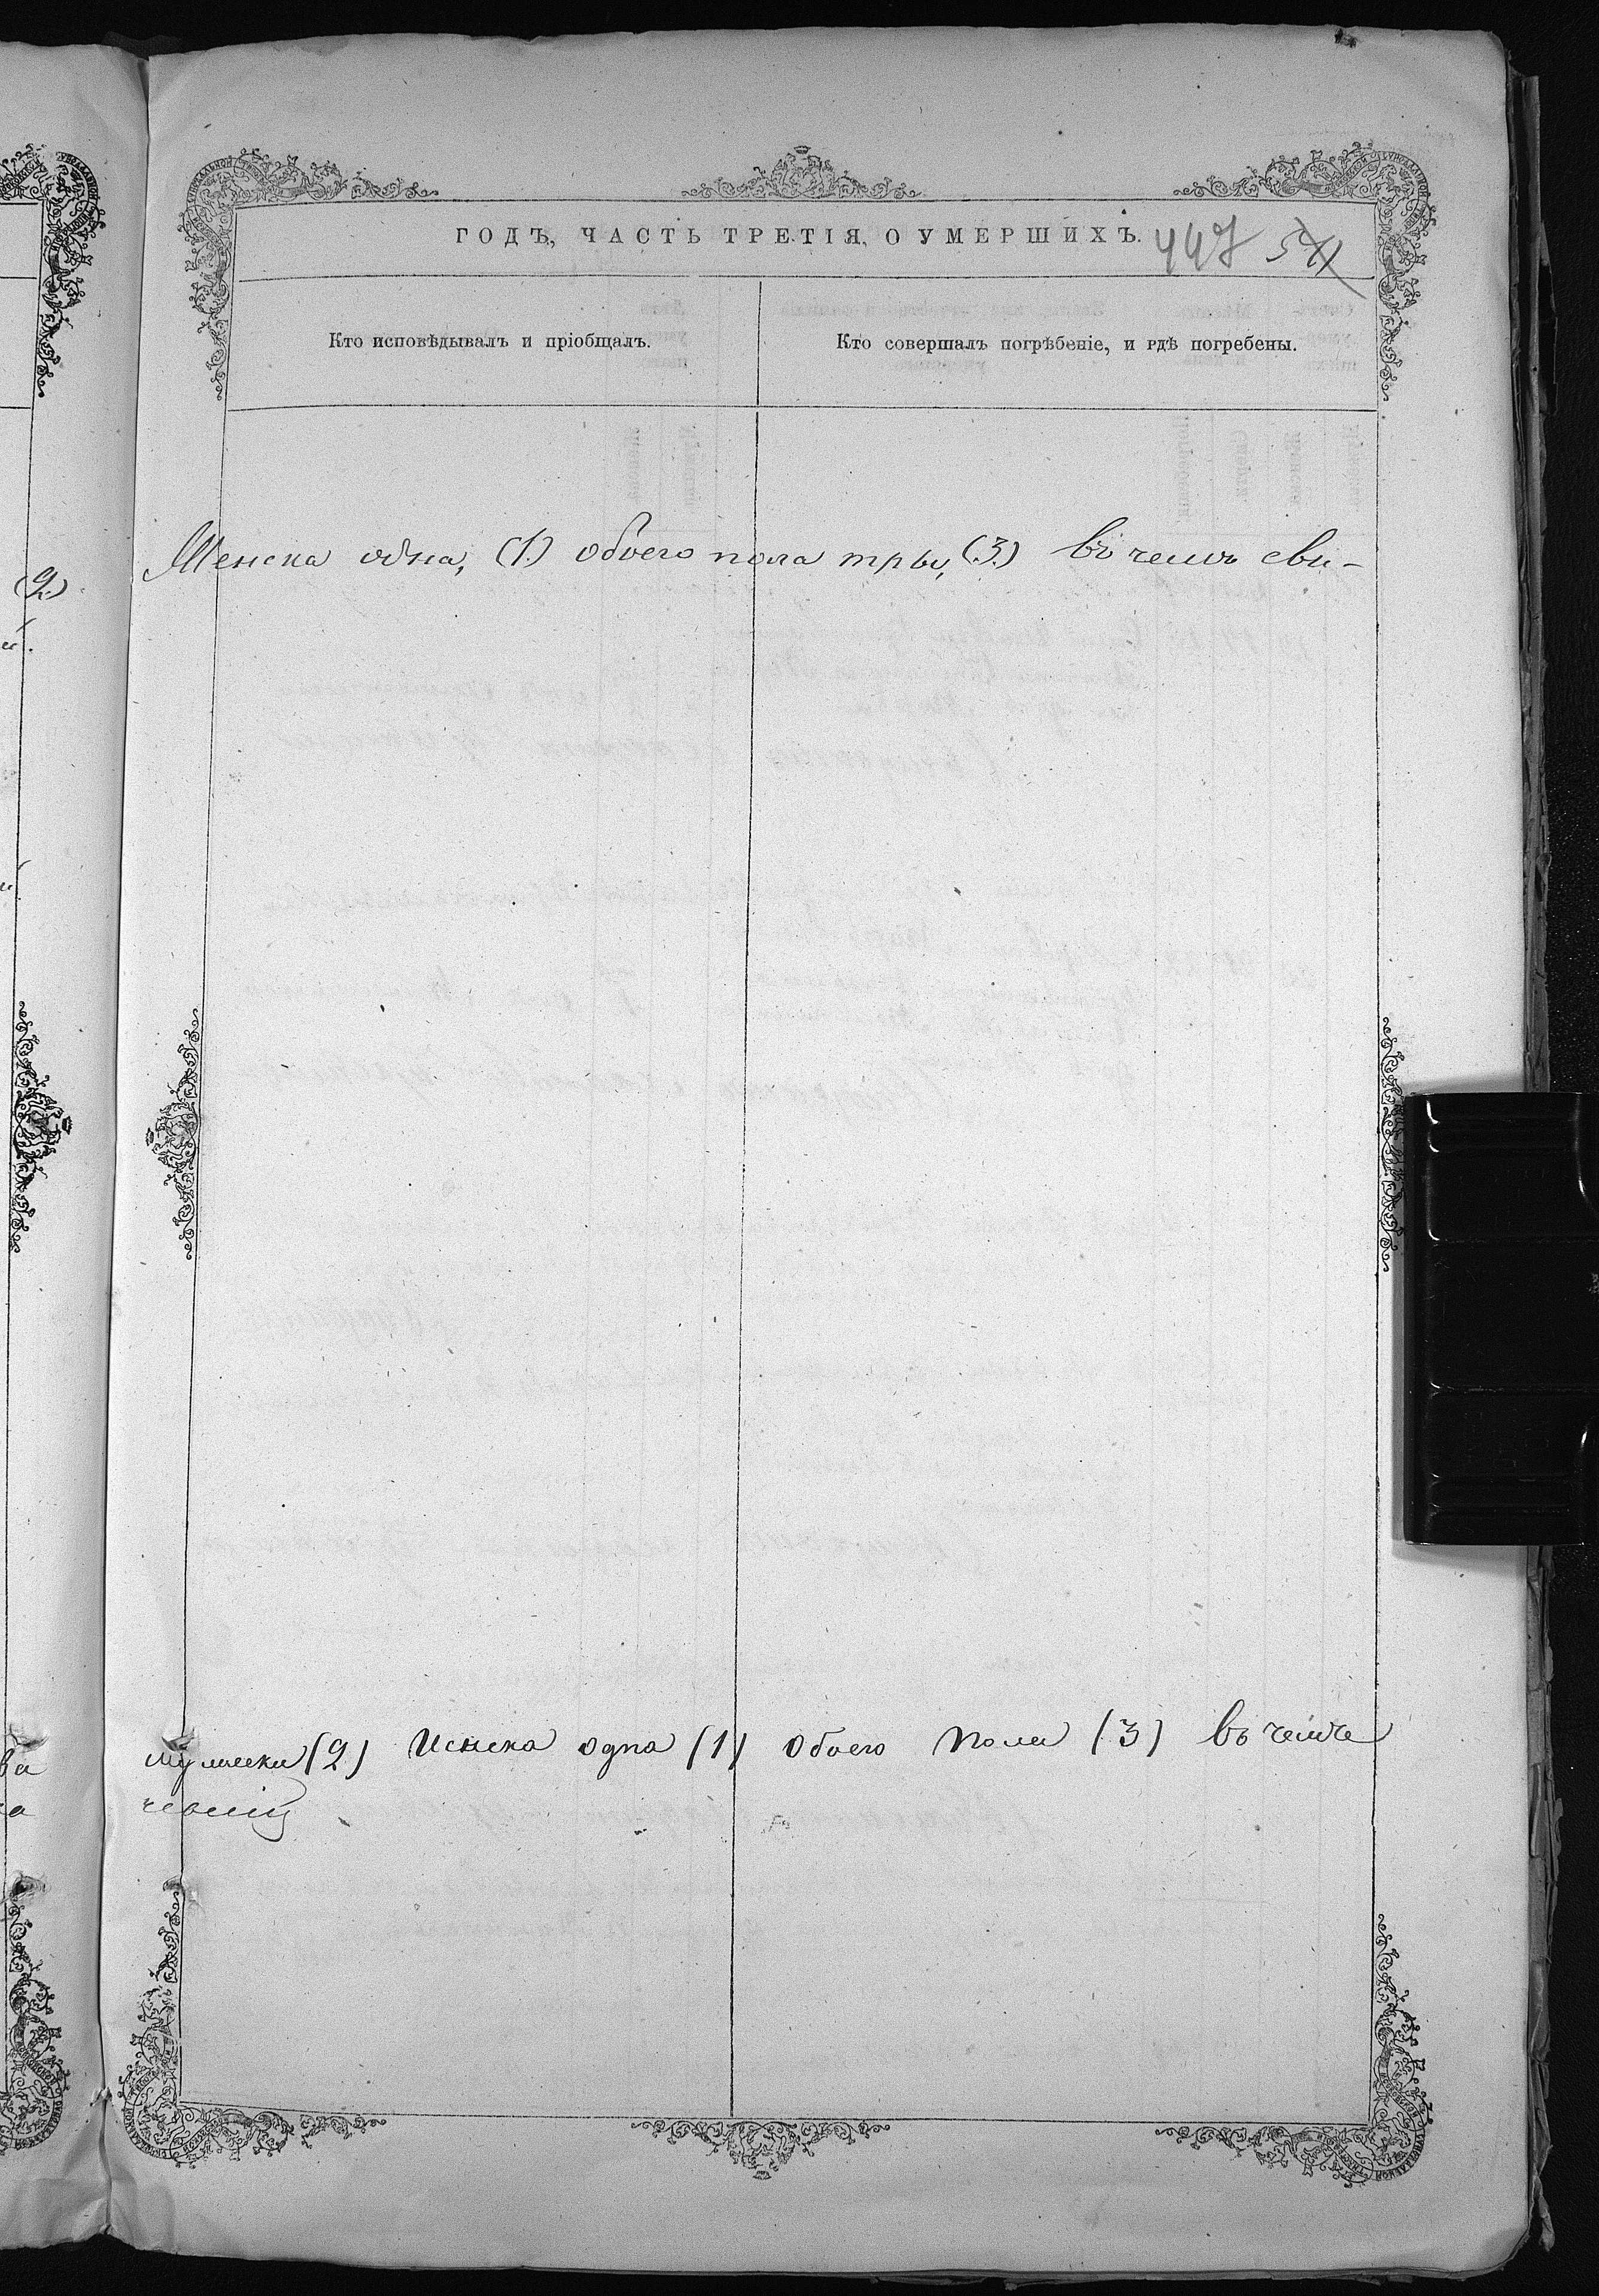 ГОДЪ, ЧАСТЬ ТРЕТІЯ, О УМЕРШИХЪ.
447 571
Кто исповѣдывалъ и пріобщалъ.
Кто совершалъ погрѣбеніе, и гдѣ погребены.
(2)
Женска одна, (1) обоего пола три, (3) въ чемъ сви-
(2) Женска одна (1) обоего пола (3) въ чемъ